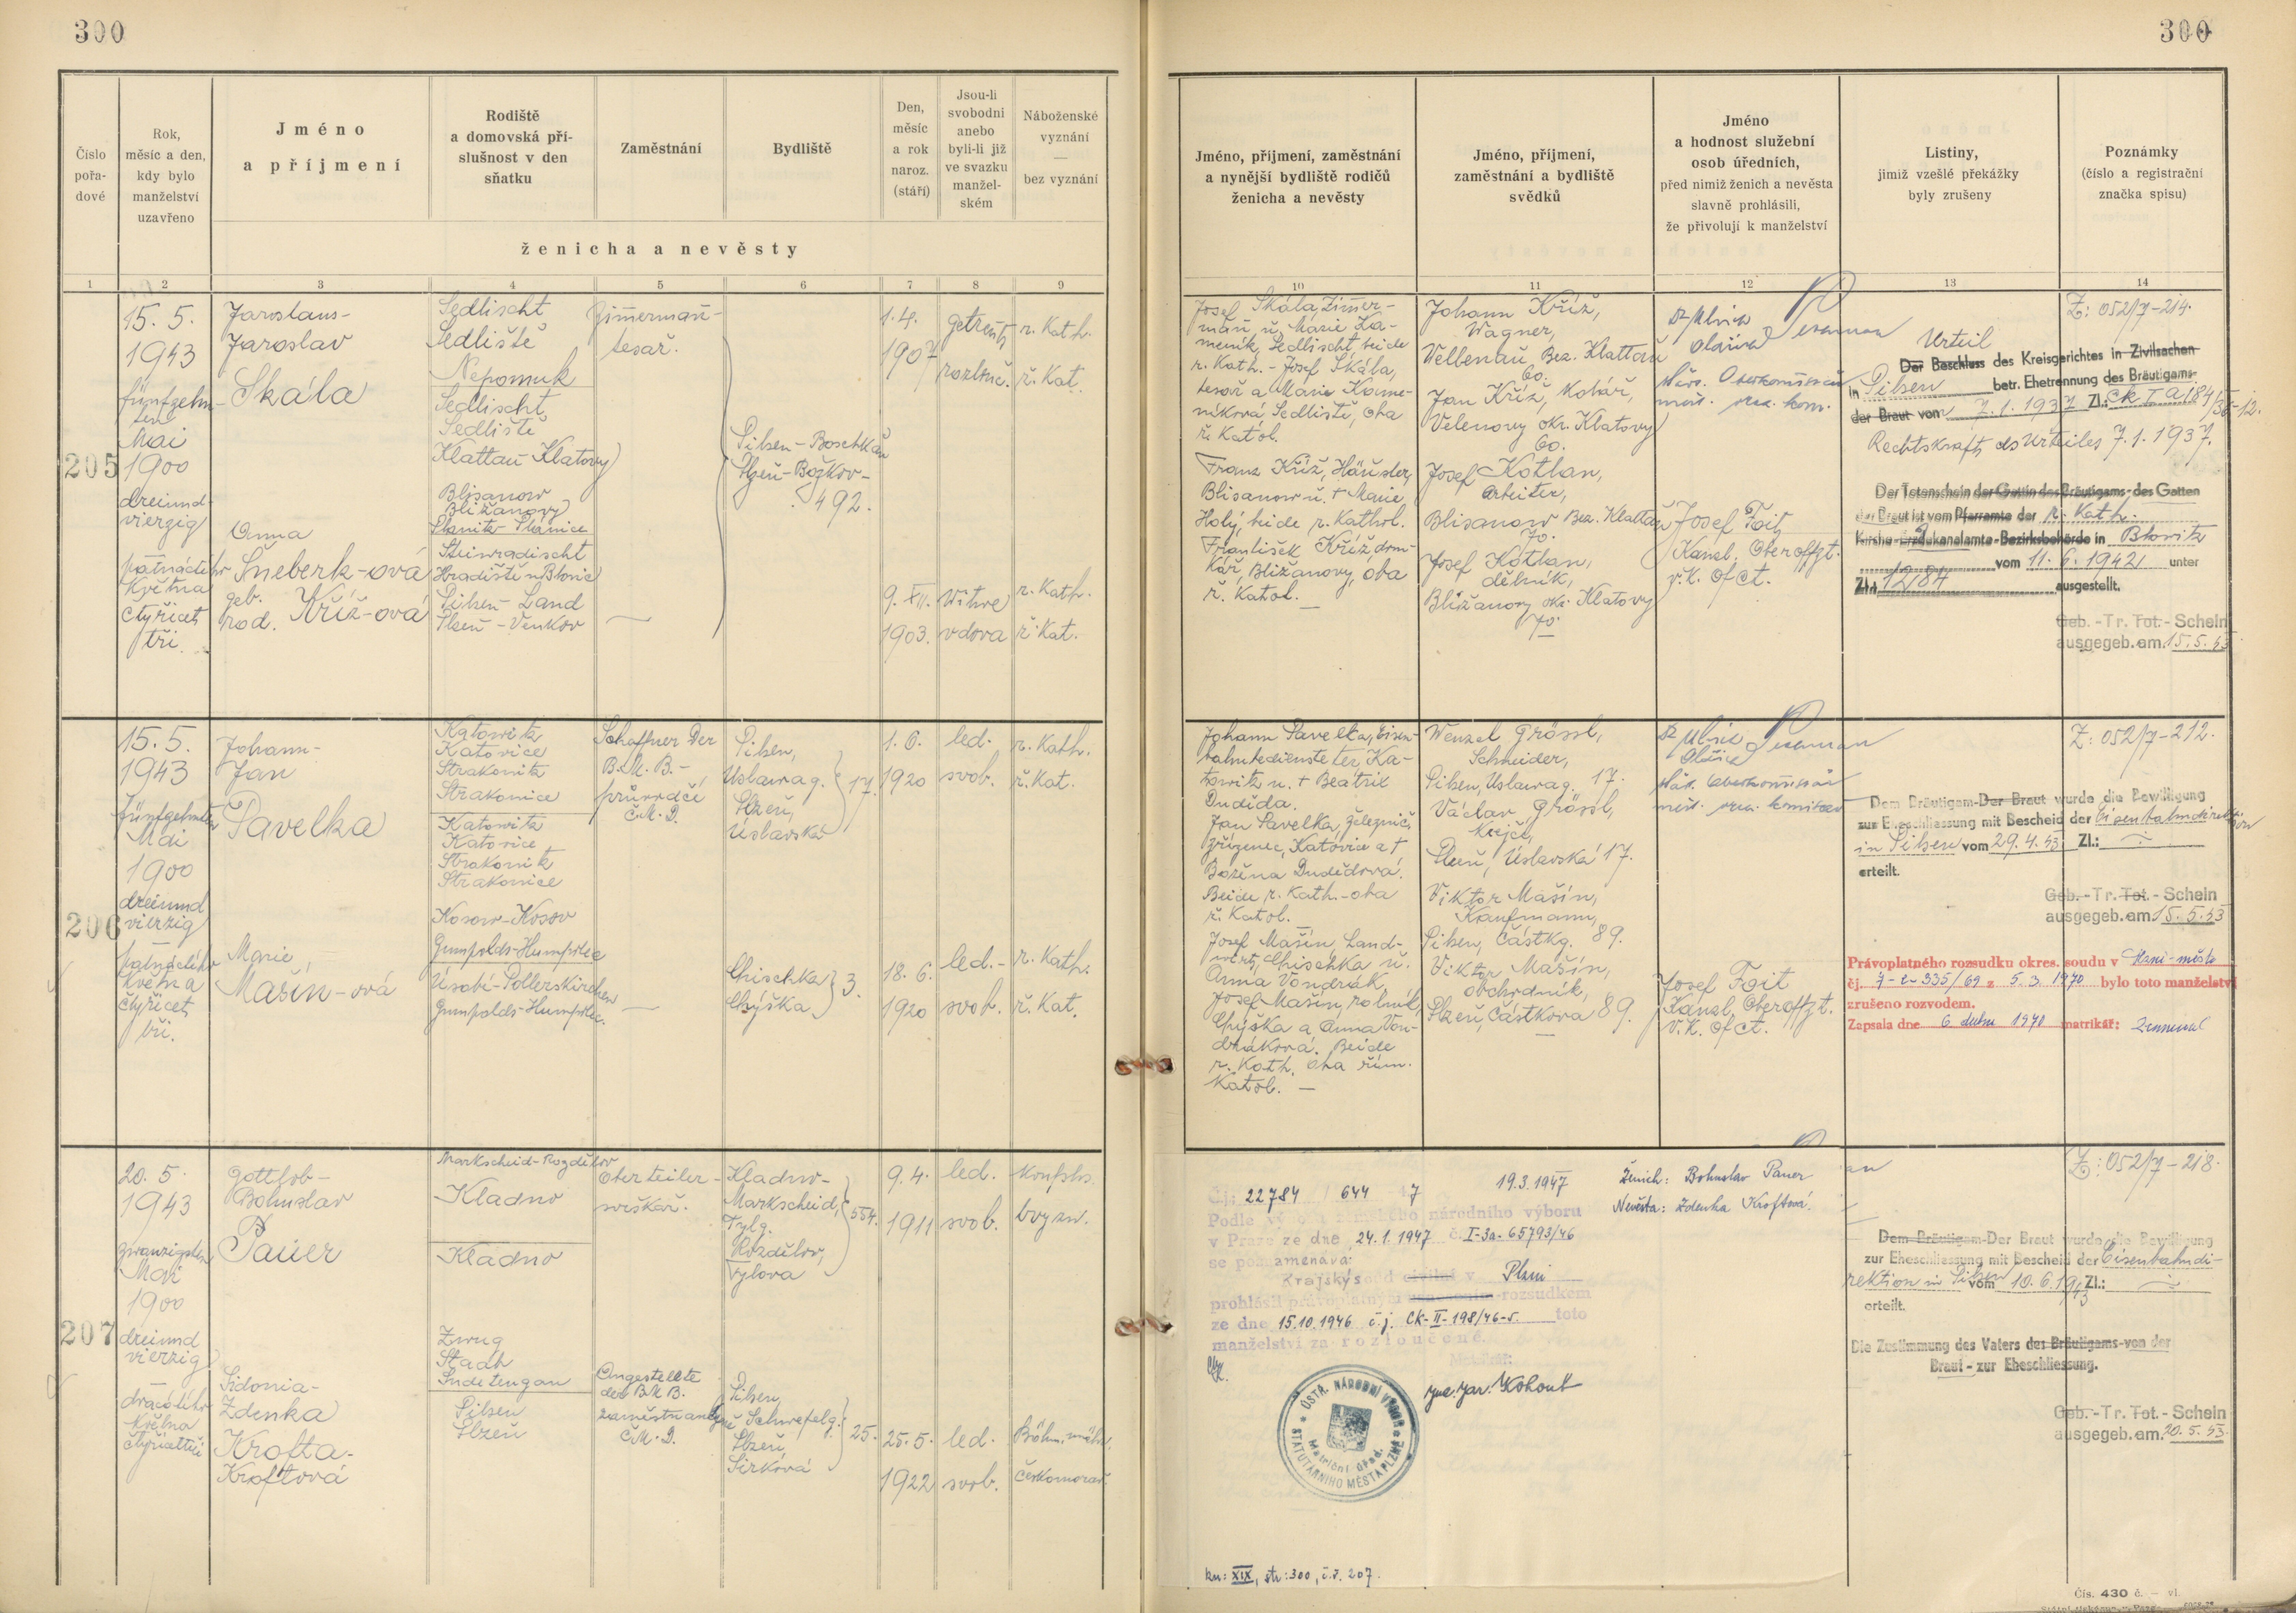 300
300
Číslo pořa-dové
Rok,
měsíc a den,
kdy bylo
manželství
uzavřeno
Jméno
a příjmení
Rodiště
a domovská pří-
slušnost v den
sňatku
Zaměstnání
Bydliště
Den,
měsíc
a rok
naroz.
(stáří)
Jsou-li
svobodni
anebo
byli-li již
ve svazku
manžel-
ském
Náboženské
vyznání
—
bez vyznání
ženicha a nevěsty
1 2 3 4 5 6 7 8 9
Jméno, příjmení, zaměstnání
a nynější bydliště rodičů
ženicha a nevěsty
Jméno, příjmení,
zaměstnání a bydliště
svědků
Jméno
a hodnost služební
osob úředních,
před nimiž ženich a nevěsta
slavně prohlásili,
že přivolují k manželství
Listiny,
jimiž vzešlé překážky
byly zrušeny
Poznámky
(číslo a registrační
značka spisu)
10 11 12 13 14
205
15. 5.
1943
fünfzehn-
ten
Mai
1900
dreiund-
vierzig
patnáctého
Května
čtyřicet
tři.
Jaroslaus-
Jaroslav
Skála
Anna
Šneberk-ová
geb.
rod. Kříž-ová
Sedlischt
Sedliště
Nepomuk
Sedlischt
Sedliště
Klattau-Klatovy
Blisanow
Bližanovy
Planitz-Plánice
Steinradischt
Hradiště u Blovic
Pilsen-Land
Plzeň-Venkov
Zimmermann-
tesař.
—
Pilsen-Boschkau
Plzeň-Božkov-
492.
1. 4.
1907
9. XII.
1903.
getrennt
rozluč.
Witwe
vdova
r. Kath.
ř. Kat.
r. Kath.
ř. Kat.
Josef Skála, Zimmer-
mann u. Marie Ka-
meník, Sedlischt, beide
r. Kath. - Josef Skála,
tesař a Marie Kame-
níková, Sedliště, oba
ř. Katol.
Franz Kříž, Häusler,
Blisanow u. + Marie
Holý, beide r. Kathol.
František Kříž, dom-
kář, Bližanovy, oba
ř. Katol. —
Johann Kříž,
Wagner,
Wellenau, Bez. Klattau
60.
Jan Kříž, Kolář,
Velenovy okr. Klatovy
60.
Josef Kotlan,
Arbeiter,
Blisanow Bez. Klattau
70.
Josef Kotlan,
dělník,
Bližanovy okr. Klatovy
70.
Josef Foit
Kanzl. Oberoffzt.
v. K. Ofct.
Urteil
Der Beschluss des Kreisgerichtes in Zivilsachen
in Pilsen betr. Ehetrennung des Bräutigams-
der Braut von 7. 1. 1937 Zl.: Ck I a 184/36-12.
Rechtskraft des Urteiles 7. 1. 1937.
Der Totenschein der Gattin des Bräutigams-des Gatten
der Braut ist vom Pfarramte der r. Kath.
Kirche-Dekanalamte-Bezirksbehörde in Blowitz
vom 11. 6. 1942 unter
Zl.: 1284 ausgestellt.
Z: 052/7-214.
Geb.-Tr. Tot.-Schein
ausgegeb. am 15. 5. 43
206
15. 5.
1943
fünfzehnten
Mai
1900
dreiund
vierzig
patnáctého
Května
čtyřicet
tři.
Johann-
Jan
Pavelka
Marie
Mašín-ová
Katowitz
Katovice
Strakonitz
Strakonice
Katowitz
Katovice
Strakonitz
Strakonice
Kosow-Kosov
Gumpolds-Humpolec
Úsobí-Pollerskirchen
Gumpolds-Humpolec.
Schaffner Der
B. M. B.-
průvodčí
Č. M. D.
—
Pilsen,
Uslawag.
Plzeň,
Úslavská
17.
Chischka
Chýška
3.
1. 6.
1920
18. 6.
1920
led.
svob.
led.-
svob.
r. Kath.
ř. Kat.
r. Kath.
ř. Kat.
Johann Pavelka, Eisen-
bahnbediensteter, Ka-
towitz u. + Beatrix
Dudida.
Jan Pavelka, železnič.
zřízenec, Katovice a +
Božena Dudědová.
Beide r. Kath.-oba
ř. Katol.
Josef Mašín, Land-
wirt, Chischka u.
Anna Vondrák
Josef Mašín, rolník,
Chýška a Anna Von-
dráková. Beide
r. Kath. oba řím.
Katol. —
Wenzel Grössl,
Schneider,
Pilsen, Uslawag. 17.
Václav Grössl,
Krejčí,
Plzeň, Úslavská 17.
Viktor Mašín,
Kaufmann,
Pilsen, Částkg. 89.
Viktor Mašín,
obchodník,
Plzeň, Částkova 89.
—
Josef Foit
Kanzl. Oberoffzt.
v. K. Ofct.
Dem Bräutigam-Der Braut wurde die Bewilligung
zur Eheschliessung mit Bescheid der Eisenbahndirektion
in Pilsen vom 29. 4. 43 Zl.: ÷
erteilt.
Z: 052/7-212.
Geb.-Tr. Tot.-Schein
ausgegeb. am 15. 5. 43
Právoplatného rozsudku okres. soudu v Plzni-město
čj. 7-C-335/69 z 5. 3. 1970 bylo toto manželství
zrušeno rozvodem.
Zapsala dne 6 dubna 1970 matrikář:
207
20. 5.
1943
zwanzigsten
Mai
1900
dreiund
vierzig
dvacátého
Května
čtyřicettři
Gottlob-
Bohuslav
Pauer
Sidonia-
Zdenka
Krofta-
Kroftová
Markscheid-Rozdělov
Kladno
Kladno
Zwug
Stadt
Sudetengau
Pilsen
Plzeň
Oberteiler-
svrškař.
Angestellte
der B. M. B.
zaměstnankyně
Č. M. D.
Kladno-
Markscheid,
Tylg.
Rozdělov,
Tylova
554.
Pilsen
Schwefelg.
Plzeň
Sirková
25.
9. 4.
1911
25. 5.
1922
led.
svob.
led.
svob.
konfslos.
bvyzn.
Böhm. mähr.
Českomorav.
Č.j.: 22784 / 644 47 19. 3. 1947
Podle výnosu zemského národního výboru
v Praze ze dne 24. 1. 1947 č. I-3a-65793/46
se poznamenává:
Krajský soud civilní v Plzni
prohlásil právoplatným rozsudkem
ze dne 15. 10. 1946 č. j. CK-II-198/46-5. toto
manželství za rozloučené.
Matrikář:
Jar. Kohout
OSTŘ. NÁRODNÍ VÝBOR
STATUTÁRNÍHO MĚSTA PLZNĚ
Matriční úřad.
Ženich: Bohuslav Pauer
Nevěsta: Zdenka Kroftová.
kn: XIX, str: 300, č. ř. 207.
Dem Bräutigam-Der Braut wurde die Bewilligung
zur Eheschliessung mit Bescheid der Eisenbahndi-
rektion in Pilsen vom 10. 6. 1943 Zl.: ÷
erteilt.
Die Zustimmung des Vaters des Bräutigams-von der
Braut-zur Eheschliessung.
Z: 052/7-218.
Geb.-Tr. Tot.-Schein
ausgegeb. am 20. 5. 43.
Čís. 430 č. — vl.